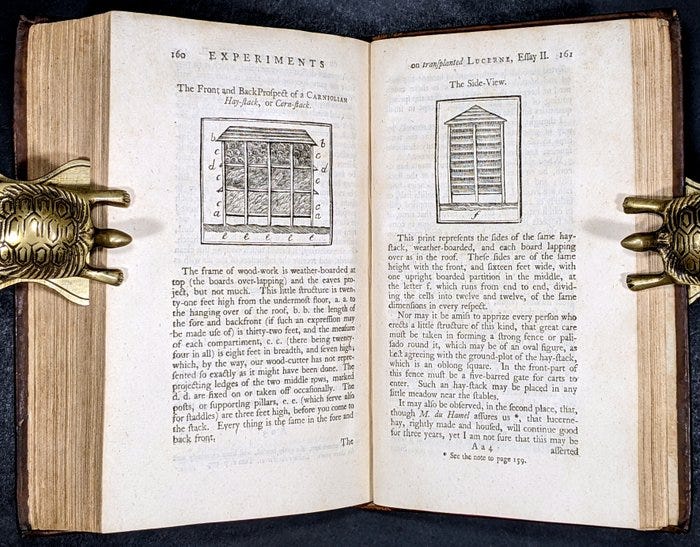 160 EXPERIMENTS
The Front and Back Prospect of a CARNIOLIAN
Hay-stack, or Corn-stack.
b b
c c
d d
c c
c c
a a
e e e e e
The frame of wood-work is weather-boarded at
top (the boards over-lapping) and the eaves pro-
ject, but not much. This little structure is twen-
ty-one feet high from the undermost floor, a. a. to
the hanging over of the roof, b. b. the length of
the fore and backfront (if such an expression may
be made use of) is thirty-two feet, and the measure
of each compartment, c. c. (there being twenty-
four in all) is eight feet in breadth, and seven high,
which, by the way, our wood-cutter has not repre-
sented so exactly as it might have been done. The
projecting ledges of the two middle rows, marked
d. d. are fixed on or taken off occasionally. The
posts, or supporting pillars, e. e. (which serve also
for staddles) are three feet high, before you come to
the stack. Every thing is the same in the fore and
back front.
The
on transplanted LUCERNE, Essay II. 161
The Side-View.
f
This print represents the sides of the same hay-
stack, weather-boarded, and each board lapping
over as in the roof. These sides are of the same
height with the front, and sixteen feet wide, with
one upright boarded partition in the middle, at
the letter f. which runs from end to end, divid-
ing the cells into twelve and twelve, of the same
dimensions in every respect.
Nor may it be amiss to apprize every person who
erects a little structure of this kind, that great care
must be taken in forming a strong fence or pali-
sado round it, which may be of an oval figure, as
best agreeing with the ground-plot of the hay-stack,
which is an oblong square. In the front-part of
this fence must be a five-barred gate for carts to
enter. Such an hay-stack may be placed in any
little meadow near the stables.
It may also be observed, in the second place, that,
though M. du Hamel assures us *, that lucerne-
hay, rightly made and housed, will continue good
for three years, yet I am not sure that this may be
A a 4 asserted
* See the note to page 159.